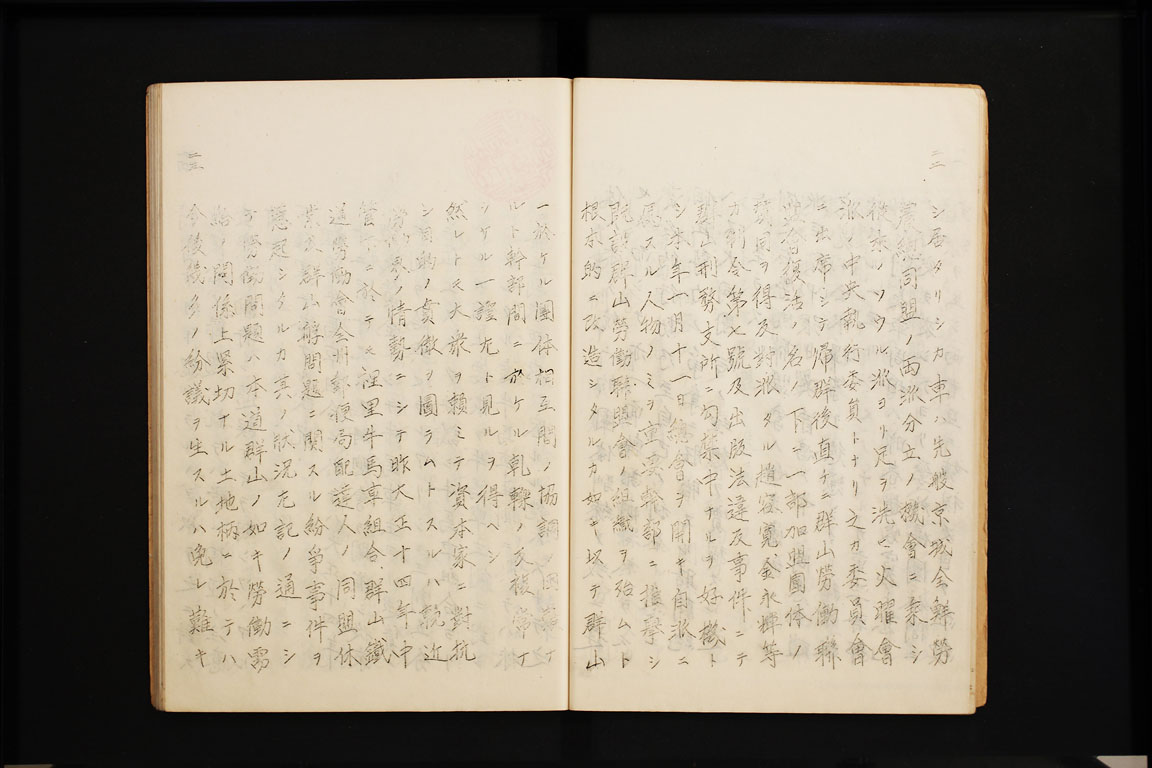 シ居タリシカ車ノ先般京城全鮮勞
農總同盟ノ両派分立ノ機會ニ乘シ
從來ノソウル派ヨリ足ヲ洗ヒ火曜會
派ノ中央執行委員トナリ之カ委員會
ニ出席シテ帰群後直チニ群山勞働聯
盟會復活ノ名ノ下ニ一部加盟團体ノ
賛同ヲ得及對派タル趙容寛、金永輝等
カ制令第七號及出版法違反事件ニテ
群山刑務支所ニ勾禁中ナルヲ好機ト
シ本年一月十一日總會ヲ開キ自派ニ
属スル人物ノミヲ重要幹部ニ推擧シ
既設群山勞働聯盟會ノ組織ヲ殆ムト
根本的ニ改造シタルカ如キ以テ群山
二二
ニ於ケル團体相互間ノ協調ノ困難ナ
ルト幹部間ニ於ケル軋轢ノ反復常ナ
シケル一證左ト見ルヲ得ヘシ
然レトモ大衆ヲ頼ミテ資本家ニ對抗
シ目的ノ貫徹ヲ圖ラムトスルハ競近
勞働界ノ情勢ニシテ昨大正十四年中
管下ニ於テモ裡里牛馬車組合、群山鐵
道勞働會、全州郵便局配達人ノ同盟休
業、群山
問題ニ関スル紛爭事件ヲ
惹起シタルカ其ノ狀況左記ノ通ニシ
テ勞働問題ハ本道群山ノ如キ勞働需
給ノ関係上緊切ナル土地柄ニ於テハ
今後幾多ノ紛議ヲ生スルハ免レ難キ
二三